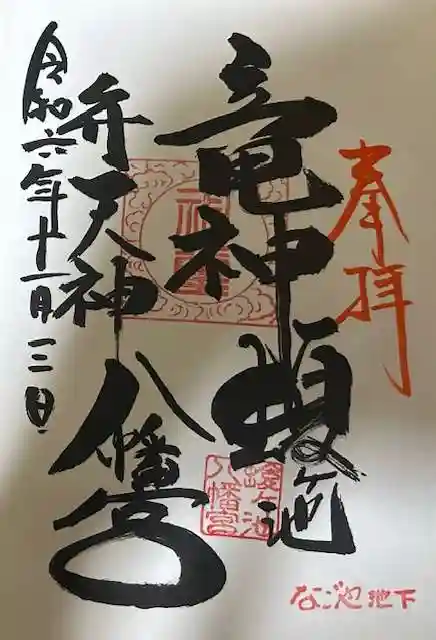 奉拝
竜神 蝮ヶ池
弁天神 八幡宮
令和六年十一月三日
蝮ヶ池
八幡宮
なごや池下